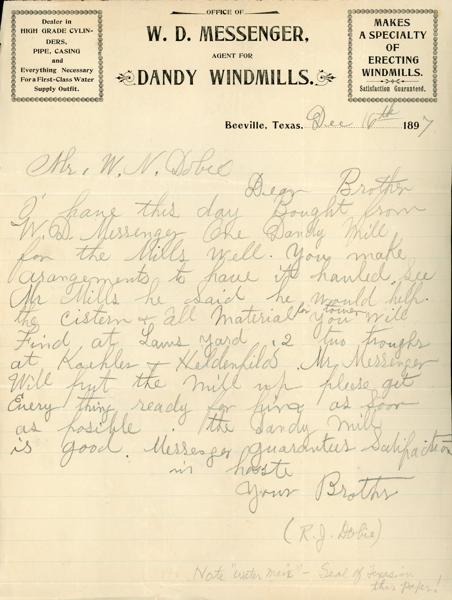 Dealer in
HIGH GRADE CYLIN-
DERS,
PIPE, CASING
and
Everything Necessary
For a First-Class Water
Supply Outfit.
OFFICE OF
W. D. MESSENGER,
AGENT FOR
DANDY WINDMILLS.
MAKES
A SPECIALTY
OF
ERECTING
WINDMILLS.
Satisfaction Guaranteed.
Beeville, Texas, Dec 16th 1897
Mr. W. N. Dobie
Dear Brother
I have this day Bought from
W. D. Messenger One Dandy Mill
for the Mills Well. You make
arangements to have it hauled. See
Mr Mills he said he would help.
for tower
the cistern & all Material You will
Find at Laws yard. 2 two troughs
at Kaehler & Heldenfilds. Mr Messenger
Will put the mill up please get
Every thing ready for him as soon
as posible. the Dandy Mill
is good. Messenger guarantees Satisfaction
in haste
Your Brother
(R. J. Dobie)
Note "water mark" - Seal of Texas on
this paper!